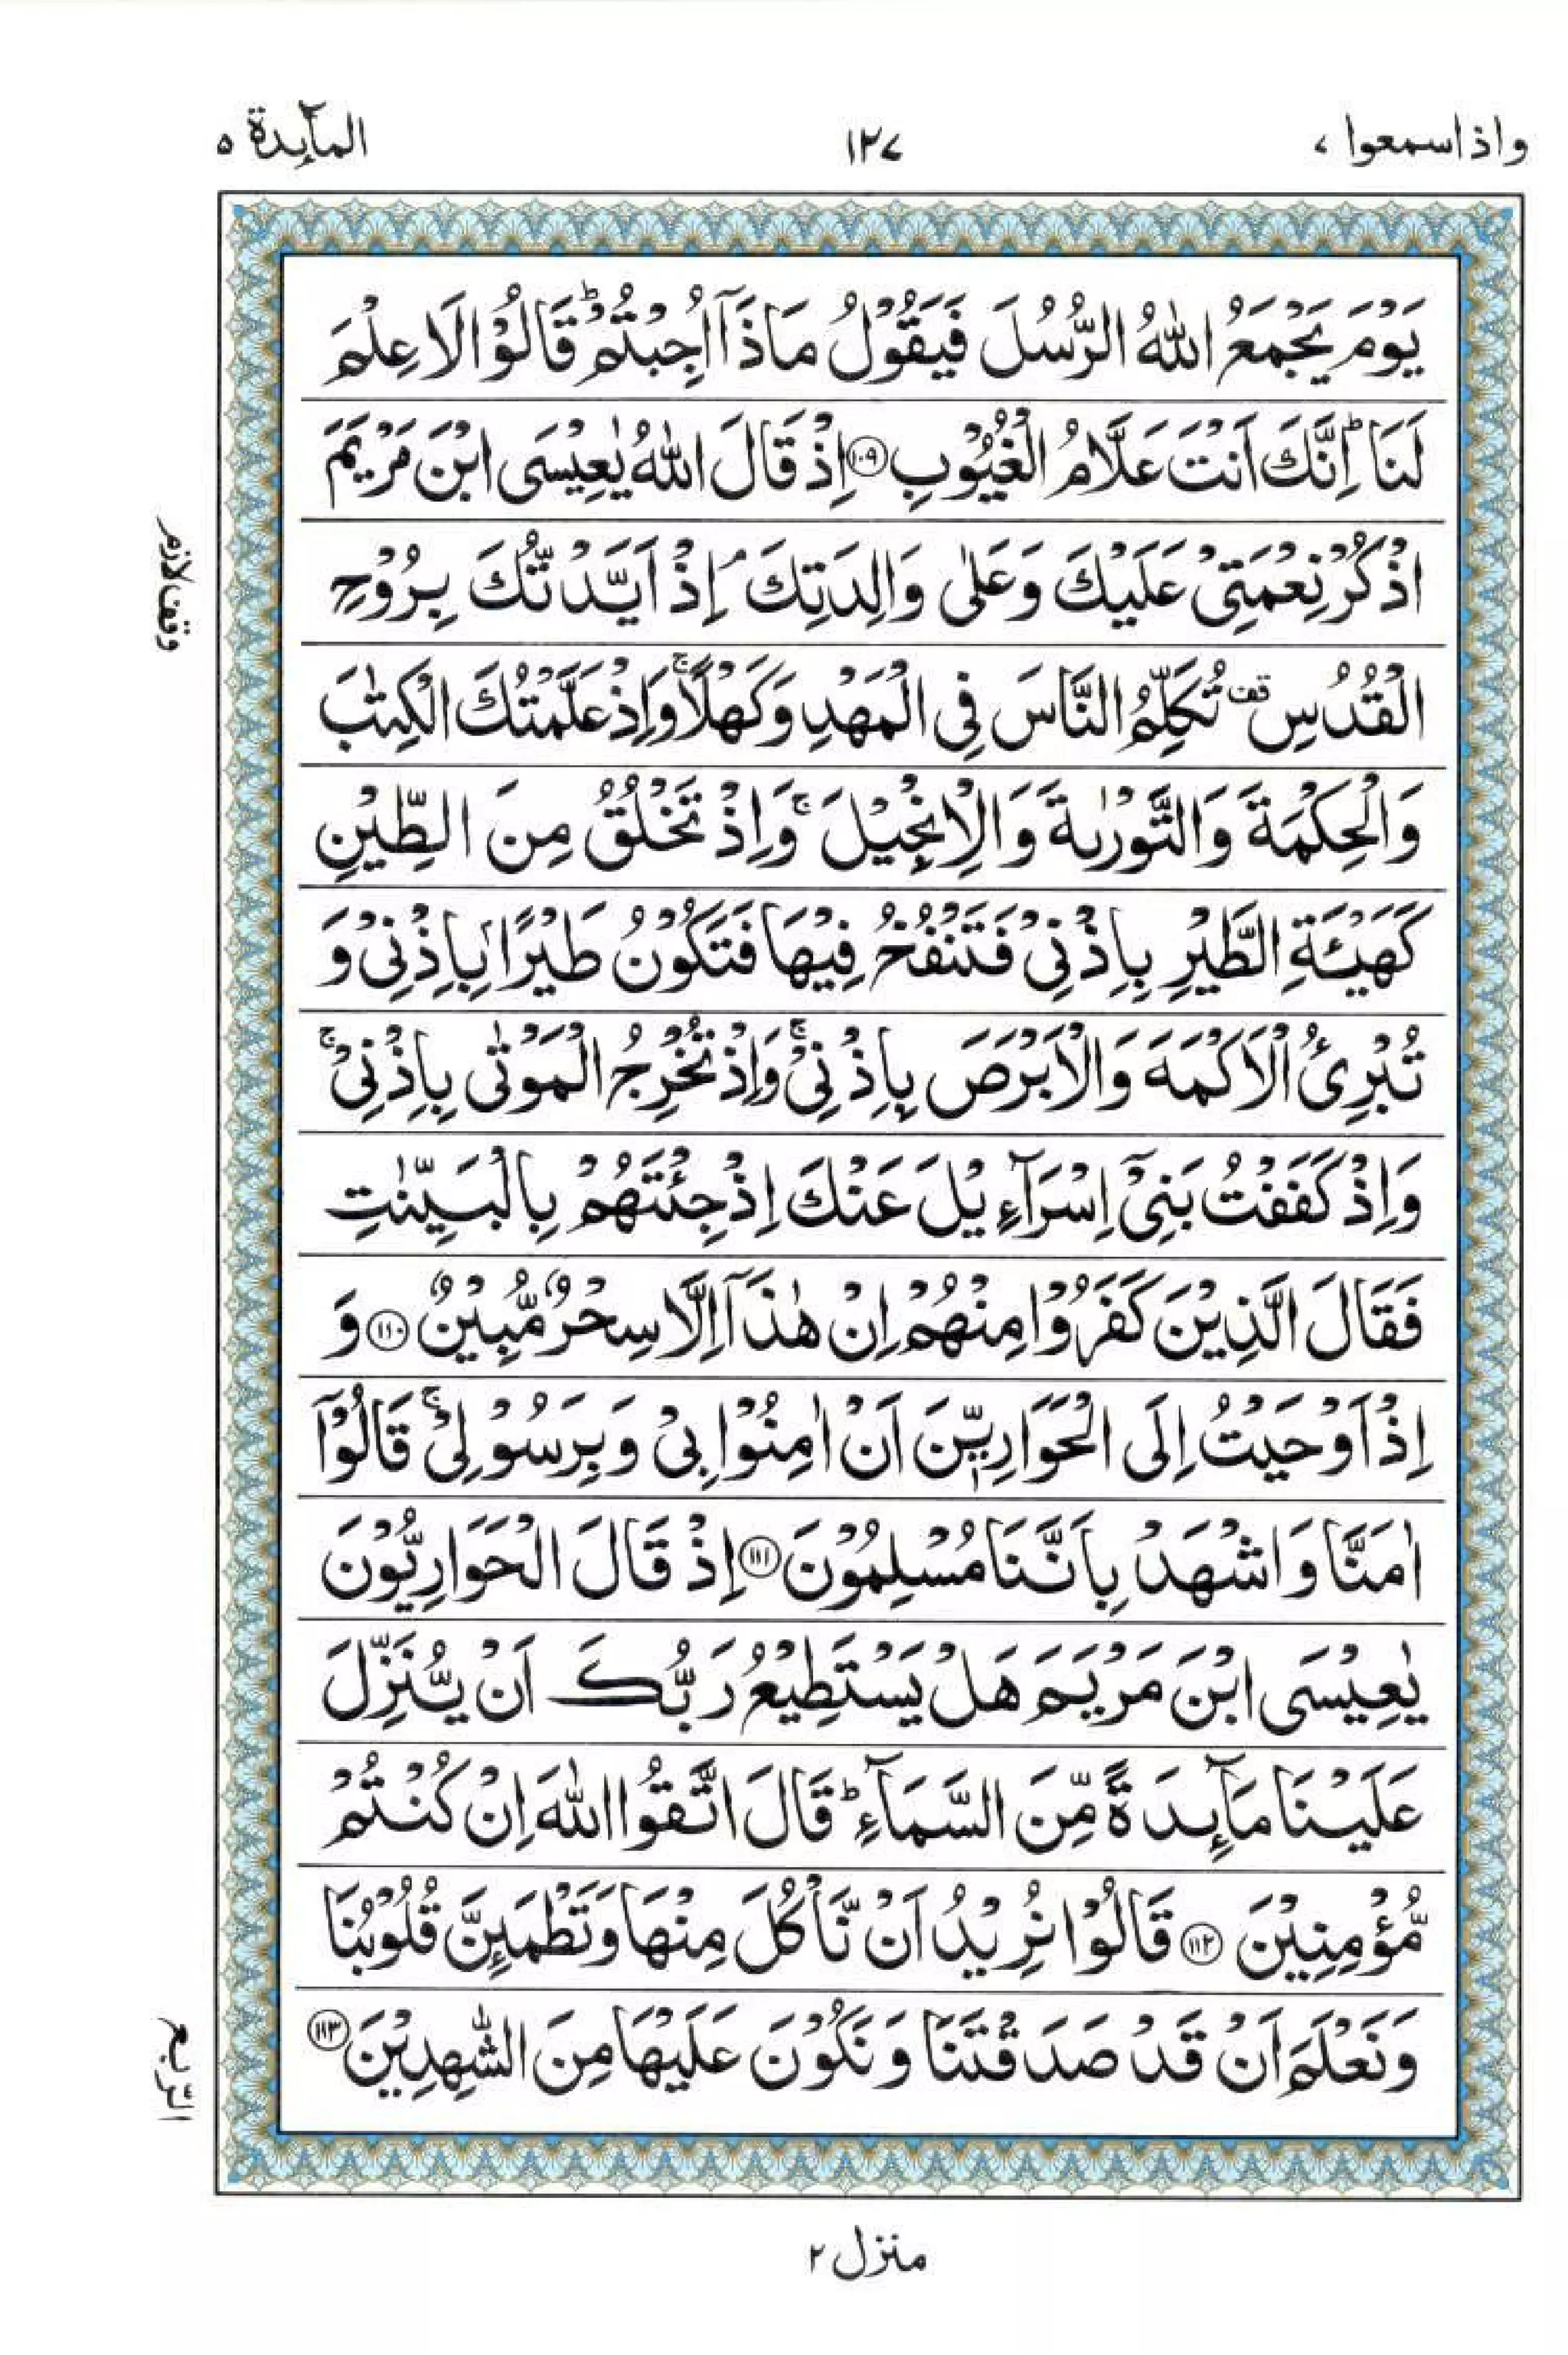 واذاسمعوا ٧
١٢٧
المآىِٕدة ٥
يَوْمَ يَجْمَعُ اللّٰهُ الرُّسُلَ فَيَقُوْلُ مَاذَاۤ اُجِبْتُمْ ؕ قَالُوْا لَا عِلْمَ
لَنَا ؕ اِنَّكَ اَنْتَ عَلَّامُ الْغُيُوْبِ ﴿١٠٩﴾ اِذْ قَالَ اللّٰهُ يٰعِيْسَى ابْنَ مَرْيَمَ
اذْكُرْ نِعْمَتِيْ عَلَيْكَ وَعَلٰى وَالِدَتِكَ ۘ اِذْ اَيَّدْتُّكَ بِرُوْحِ
الْقُدُسِ قف تُكَلِّمُ النَّاسَ فِي الْمَهْدِ وَكَهْلًا ۚ وَاِذْ عَلَّمْتُكَ الْكِتٰبَ
وَالْحِكْمَةَ وَالتَّوْرٰىةَ وَالْاِنْجِيْلَ ۚ وَاِذْ تَخْلُقُ مِنَ الطِّيْنِ
كَهَيْـَٔةِ الطَّيْرِ بِاِذْنِيْ فَتَنْفُخُ فِيْهَا فَتَكُوْنُ طَيْرًاۢ بِاِذْنِيْ وَ
تُبْرِئُ الْاَكْمَهَ وَالْاَبْرَصَ بِاِذْنِيْ ۚ وَاِذْ تُخْرِجُ الْمَوْتٰى بِاِذْنِيْ ۚ
وَاِذْ كَفَفْتُ بَنِيْۤ اِسْرَآءِيْلَ عَنْكَ اِذْ جِئْتَهُمْ بِالْبَيِّنٰتِ
فَقَالَ الَّذِيْنَ كَفَرُوْا مِنْهُمْ اِنْ هٰذَاۤ اِلَّا سِحْرٌ مُّبِيْنٌ ﴿١١٠﴾ وَ
اِذْ اَوْحَيْتُ اِلَى الْحَوَارِيّٖنَ اَنْ اٰمِنُوْا بِيْ وَبِرَسُوْلِيْ ۚ قَالُوْۤا
اٰمَنَّا وَاشْهَدْ بِاَنَّنَا مُسْلِمُوْنَ ﴿١١١﴾ اِذْ قَالَ الْحَوَارِيُّوْنَ
يٰعِيْسَى ابْنَ مَرْيَمَ هَلْ يَسْتَطِيْعُ رَبُّكَ اَنْ يُّنَزِّلَ
عَلَيْنَا مَآىِٕدَةً مِّنَ السَّمَآءِ ؕ قَالَ اتَّقُوا اللّٰهَ اِنْ كُنْتُمْ
مُّؤْمِنِيْنَ ﴿١١٢﴾ قَالُوْا نُرِيْدُ اَنْ نَّاْكُلَ مِنْهَا وَتَطْمَىِٕنَّ قُلُوْبُنَا
وَنَعْلَمَ اَنْ قَدْ صَدَقْتَنَا وَنَكُوْنَ عَلَيْهَا مِنَ الشّٰهِدِيْنَ ﴿١١٣﴾
وقف لازم
الرّبع
منزل ٢